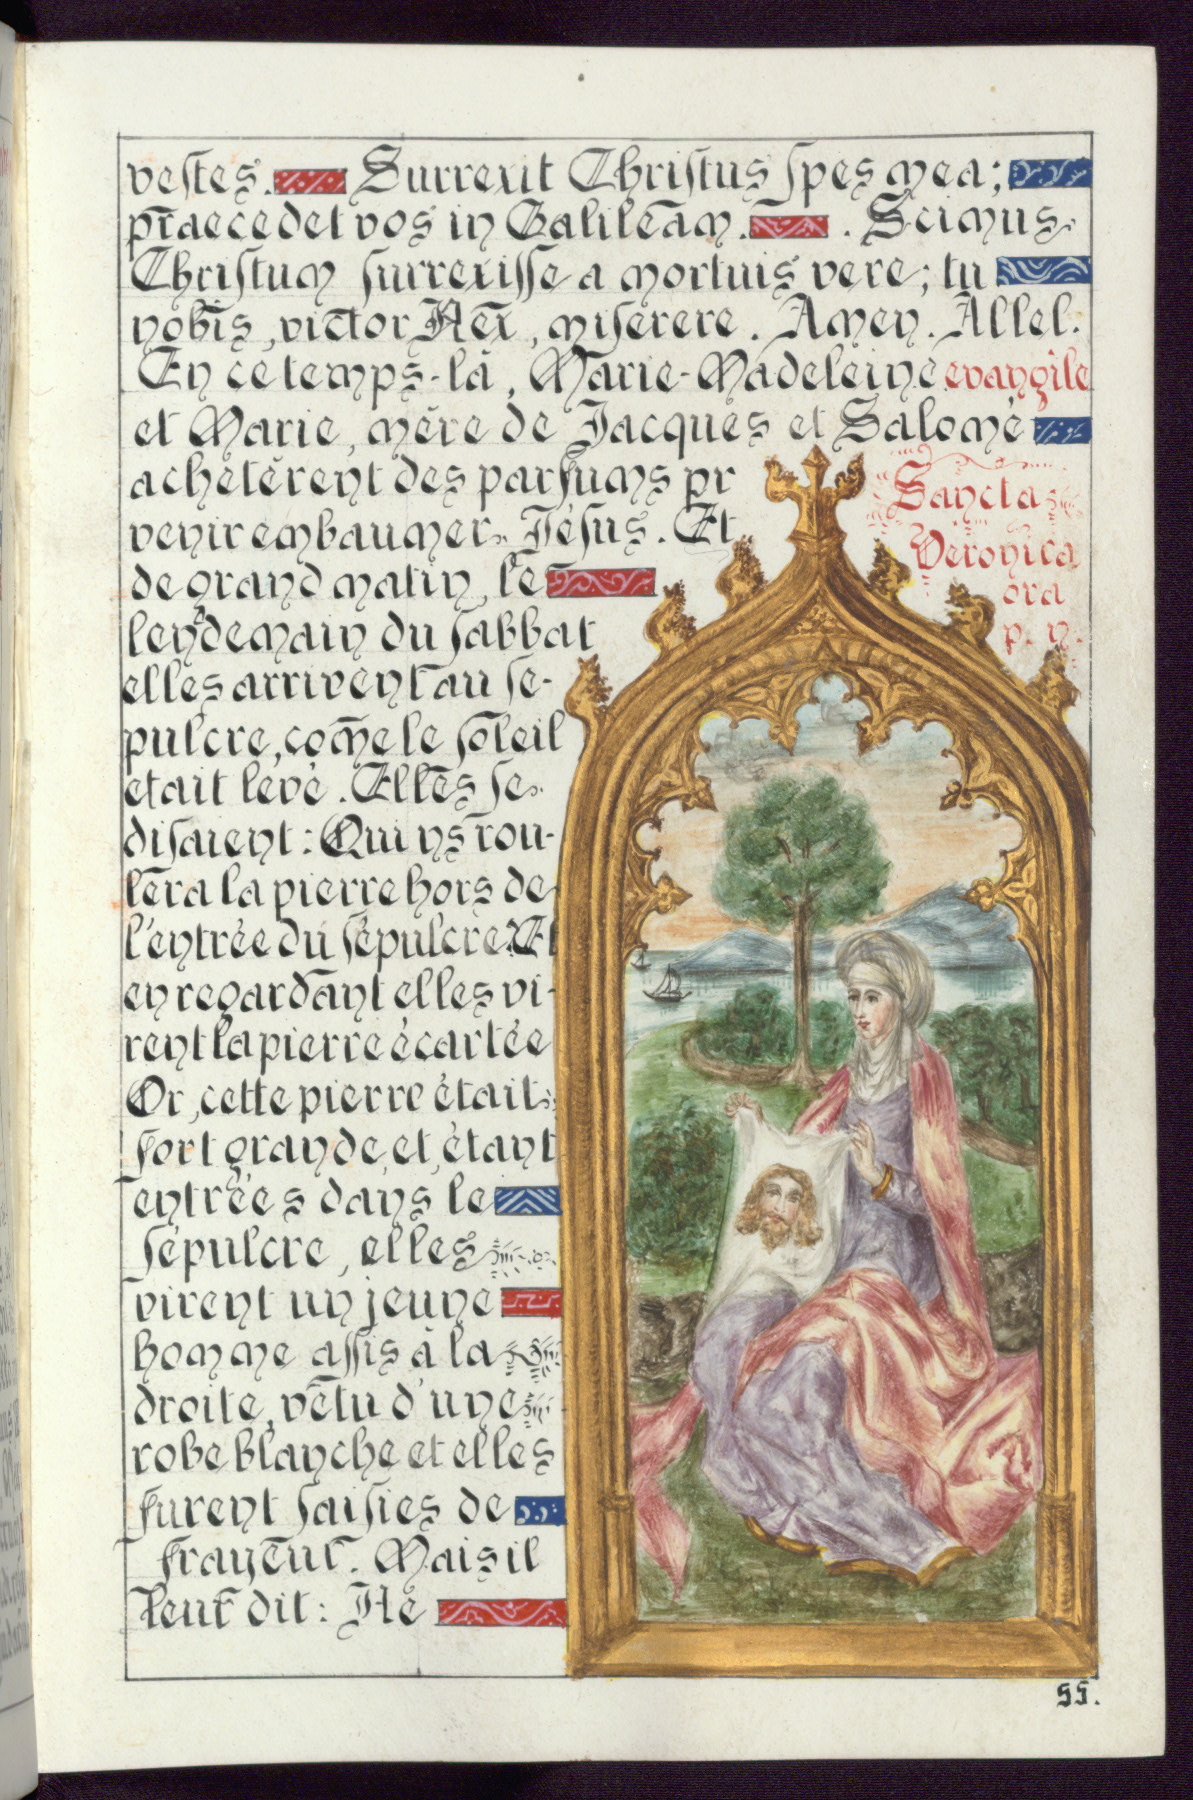 vestes. Surrexit Christus spes mea;
praecedet vos in Galileam. . Scimus
Christum surrexisse a mortuis vere; tu
nobis, victor Rex, miserere. Amen. Allel.
En ce temps-là, Marie-Madeleine evangile
et Marie, mère de Jacques et Salomé
achetèrent des parfums pr
venir embaumer Jésus. Et
de grand matin, le
lendemain du sabbat
elles arrivent au se-
pulcre, come le soleil
etait levé. Elles se
disaient: Qui ns rou-
lera la pierre hors de
l'entrée du sépulcre? Et
en regardant elles vi-
rent la pierre écartée
Or, cette pierre était
fort grande, et, étant
entrées dans le
sépulcre, elles
virent un jeune
homme assis à la
droite, vêtu d'une
robe blanche et elles
furent saisies de
frayeur. Mais il
leur dit: Ne
Sancta
Veronica
ora
p. n.
55.